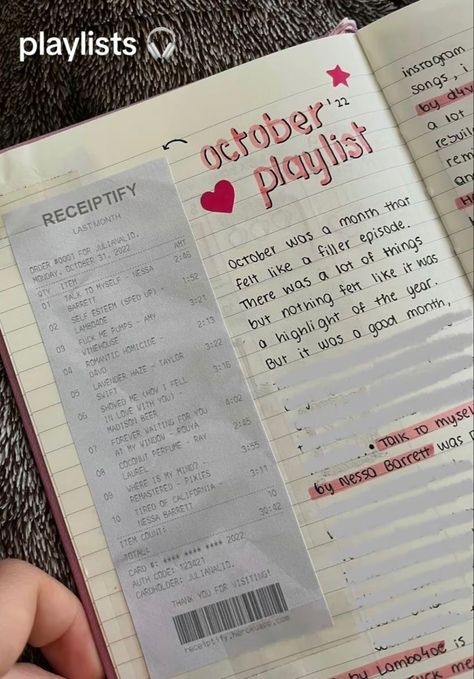 playlists 🎧
october '22
playlist
RECEIPTIFY
LAST MONTH
ORDER #0001 FOR JULIANALIO.
MONDAY, OCTOBER 31, 2022
QTY ITEM AMT
01 TALK TO MYSELF - NESSA 2:46
BARRETT
02 SELF ESTEEM (SPED UP) - 1:52
LAMBO4OE
03 FUCK ME PUMPS - AMY 3:21
WINEHOUSE
04 ROMANTIC HOMICIDE - 2:13
D4VD
05 LAVENDER HAZE - TAYLOR 3:22
SWIFT
06 SHOWED ME (HOW I FELL 3:16
IN LOVE WITH YOU) -
MADISON BEER
07 FOREVER WAITING FOR YOU 4:02
AT MY WINDOW - ROUYA
08 COCONUT PERFUME - RAY
LAUREL
09 WHERE IS MY MIND? 3:55
REMASTERED - PIXIES
10 TIRED OF CALIFORNIA - 3:11
NESSA BARRETT
ITEM COUNT: 10
TOTAL: 30:42
CARD #: **** **** **** 2022
AUTH CODE: 123421
CARDHOLDER: JULIANALIO.
THANK YOU FOR VISITING!
receiptify.herokuapp.com
october was a month that
felt like a filler episode.
There was a lot of things
but nothing felt like it was
a highlight of the year.
But it was a good month,
• Talk to myself
by Nessa Barrett was
by Lambo4oe is
Fuck me
instagram
songs, i
by d4v
a lot